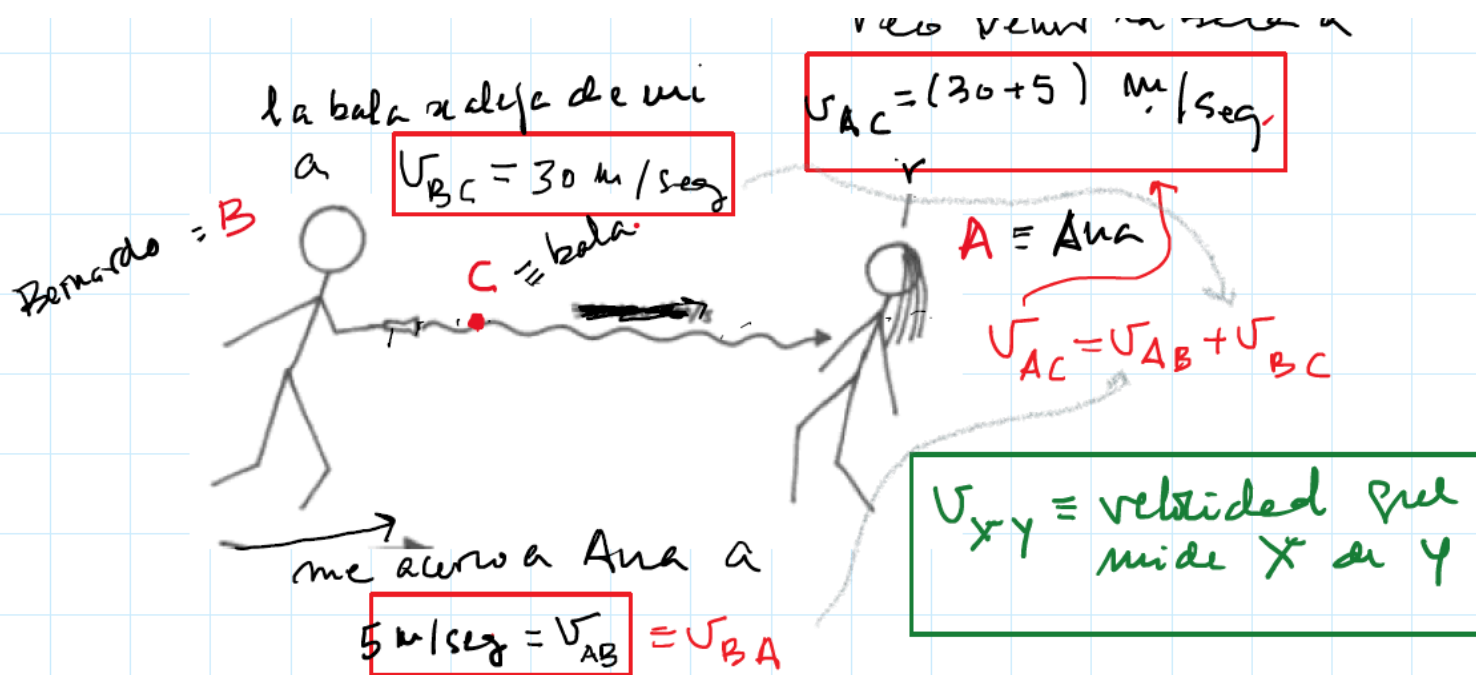 veo venir la bala a
la bala se aleja de mi
a
v_BC = 30 m/seg
v_AC = (30+5) m/seg.
Bernardo = B
C ≡ bala.
A ≡ Ana
v_AC = v_AB + v_BC
v_XY ≡ velocidad que
mide X de Y
me acerco a Ana a
5 m/seg = v_AB ≡ v_BA